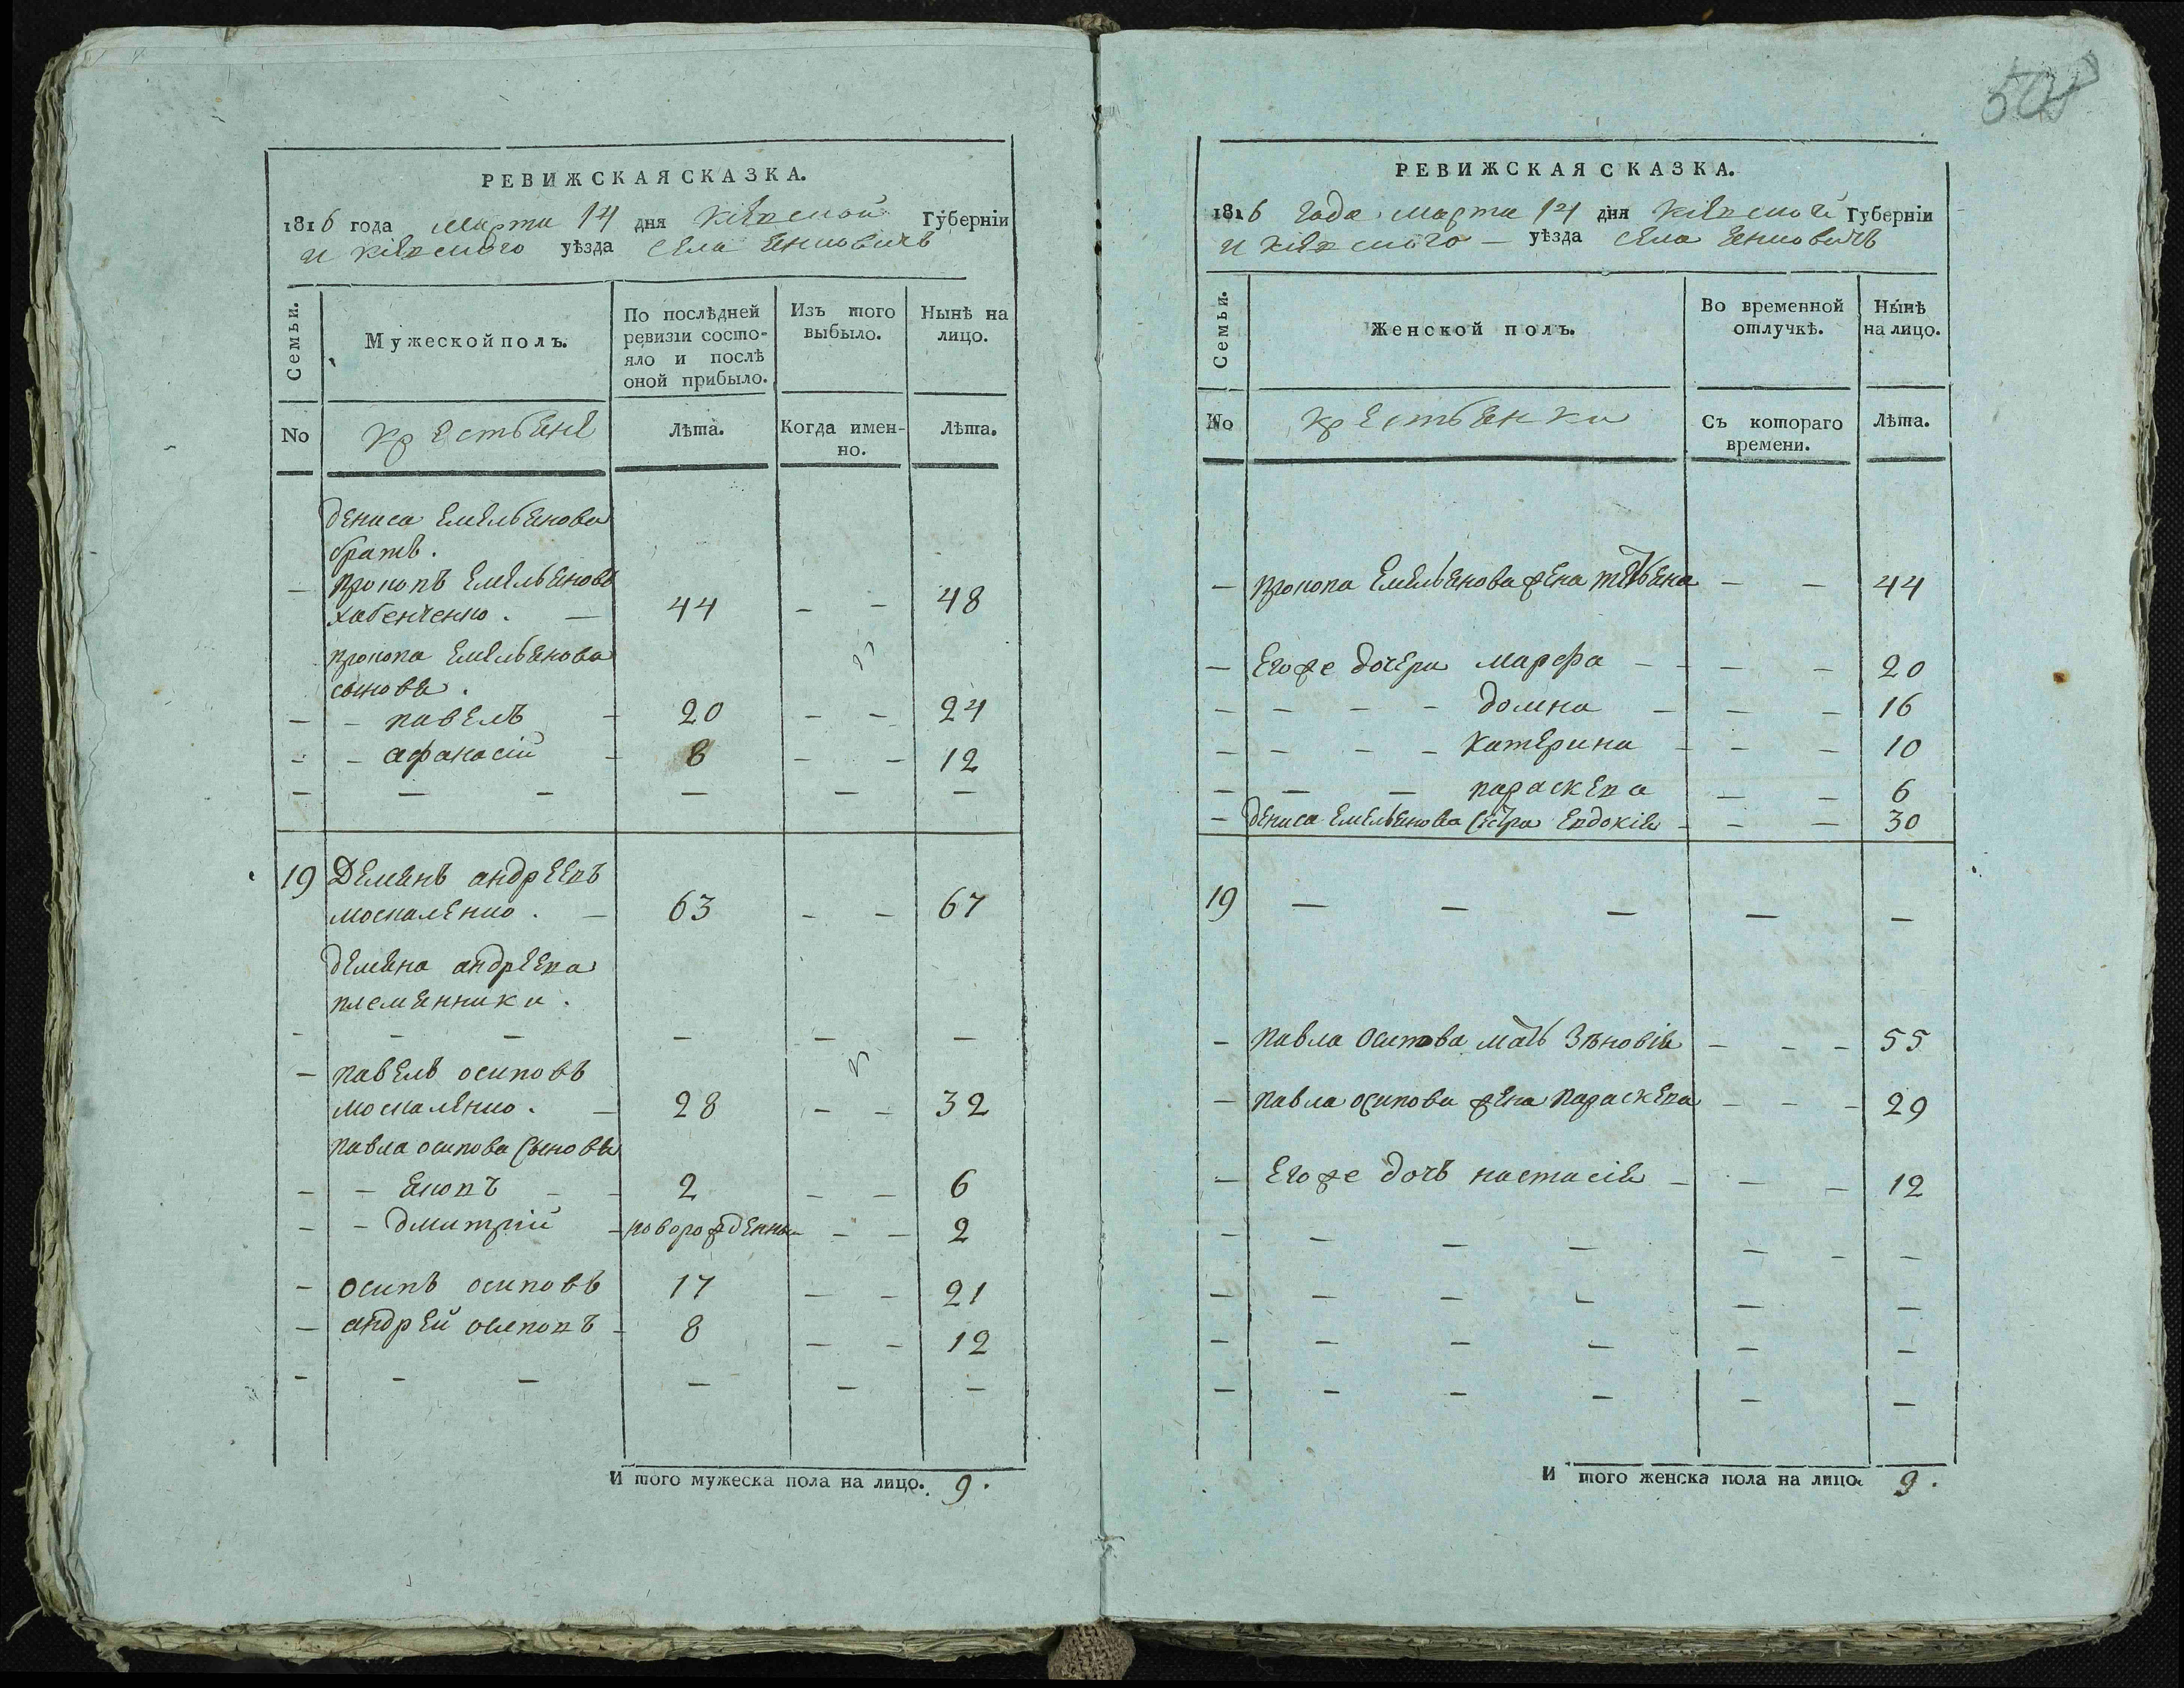 508
РЕВИЖСКАЯ СКАЗКА.
1816 года марта 14 дня Кіевской Губерніи
и Кіевского уѣзда села Янковичъ
Семьи.
Мужеской полъ.
По послѣдней ревизіи состояло и послѣ оной прибыло.
Изъ того выбыло.
Нынѣ на лицо.
No
Крестьяне
Лѣта.
Когда именно.
Лѣта.
Дениса Емельянова
братъ.
— Прокопъ Емельяновъ
44 — — 48
Прокопа Емельянова
сыновья.
— — Павелъ — 20 — — 24
— — Афанасій — 8 — — 12
— — — — — —
19 Демянъ Андреевъ
Москаленко. — 63 — — 67
Демяна Андреева
племянники.
— — — — — —
— Павелъ Осиповъ
Москаленко. — 28 — — 32
Павла Осипова сыновья
— — Яковъ — — 2 — — 6
— — Дмитрій — новорожденный — — 2
— Осипъ Осиповъ 17 — — 21
— Андрей Осиповъ — 8 — — 12
— — — — — —
И того мужеска пола на лицо. 9.
РЕВИЖСКАЯ СКАЗКА.
1816 года марта 14 дня Кіевской Губерніи
и Кіевского — уѣзда села Янковичъ
Семьи.
Женской полъ.
Во временной отлучкѣ.
Нынѣ на лицо.
No
Крестьянки
Съ котораго времени.
Лѣта.
— Прокопа Емельянова жена Татьяна — — 44
— Егоже дочери Марфа — — — — 20
— — — — Домна — — — 16
— — — — Катерина — — — 10
— — — Параскева — — 6
— Дениса Емельянова сестра Евдокія — — — 30
19 — — — — —
— Павла Осипова мать Зѣновія — — — 55
— Павла Осипова жена Параскева — — — 29
— Егоже дочь Настасія — — — 12
— — — — — — —
— — — — — —
— — — — — —
— — — — — —
И того женска пола на лицо. 9.